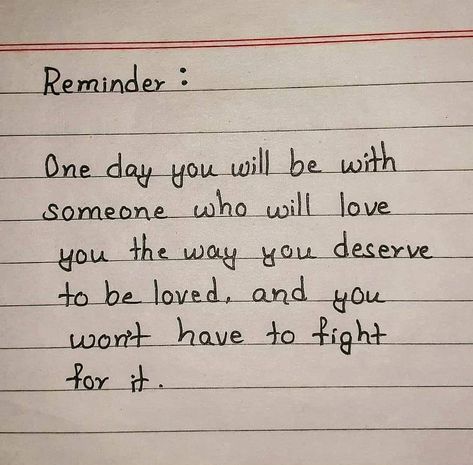 Reminder :
One day you will be with
someone who will love
you the way you deserve
to be loved, and you
won't have to fight
for it.